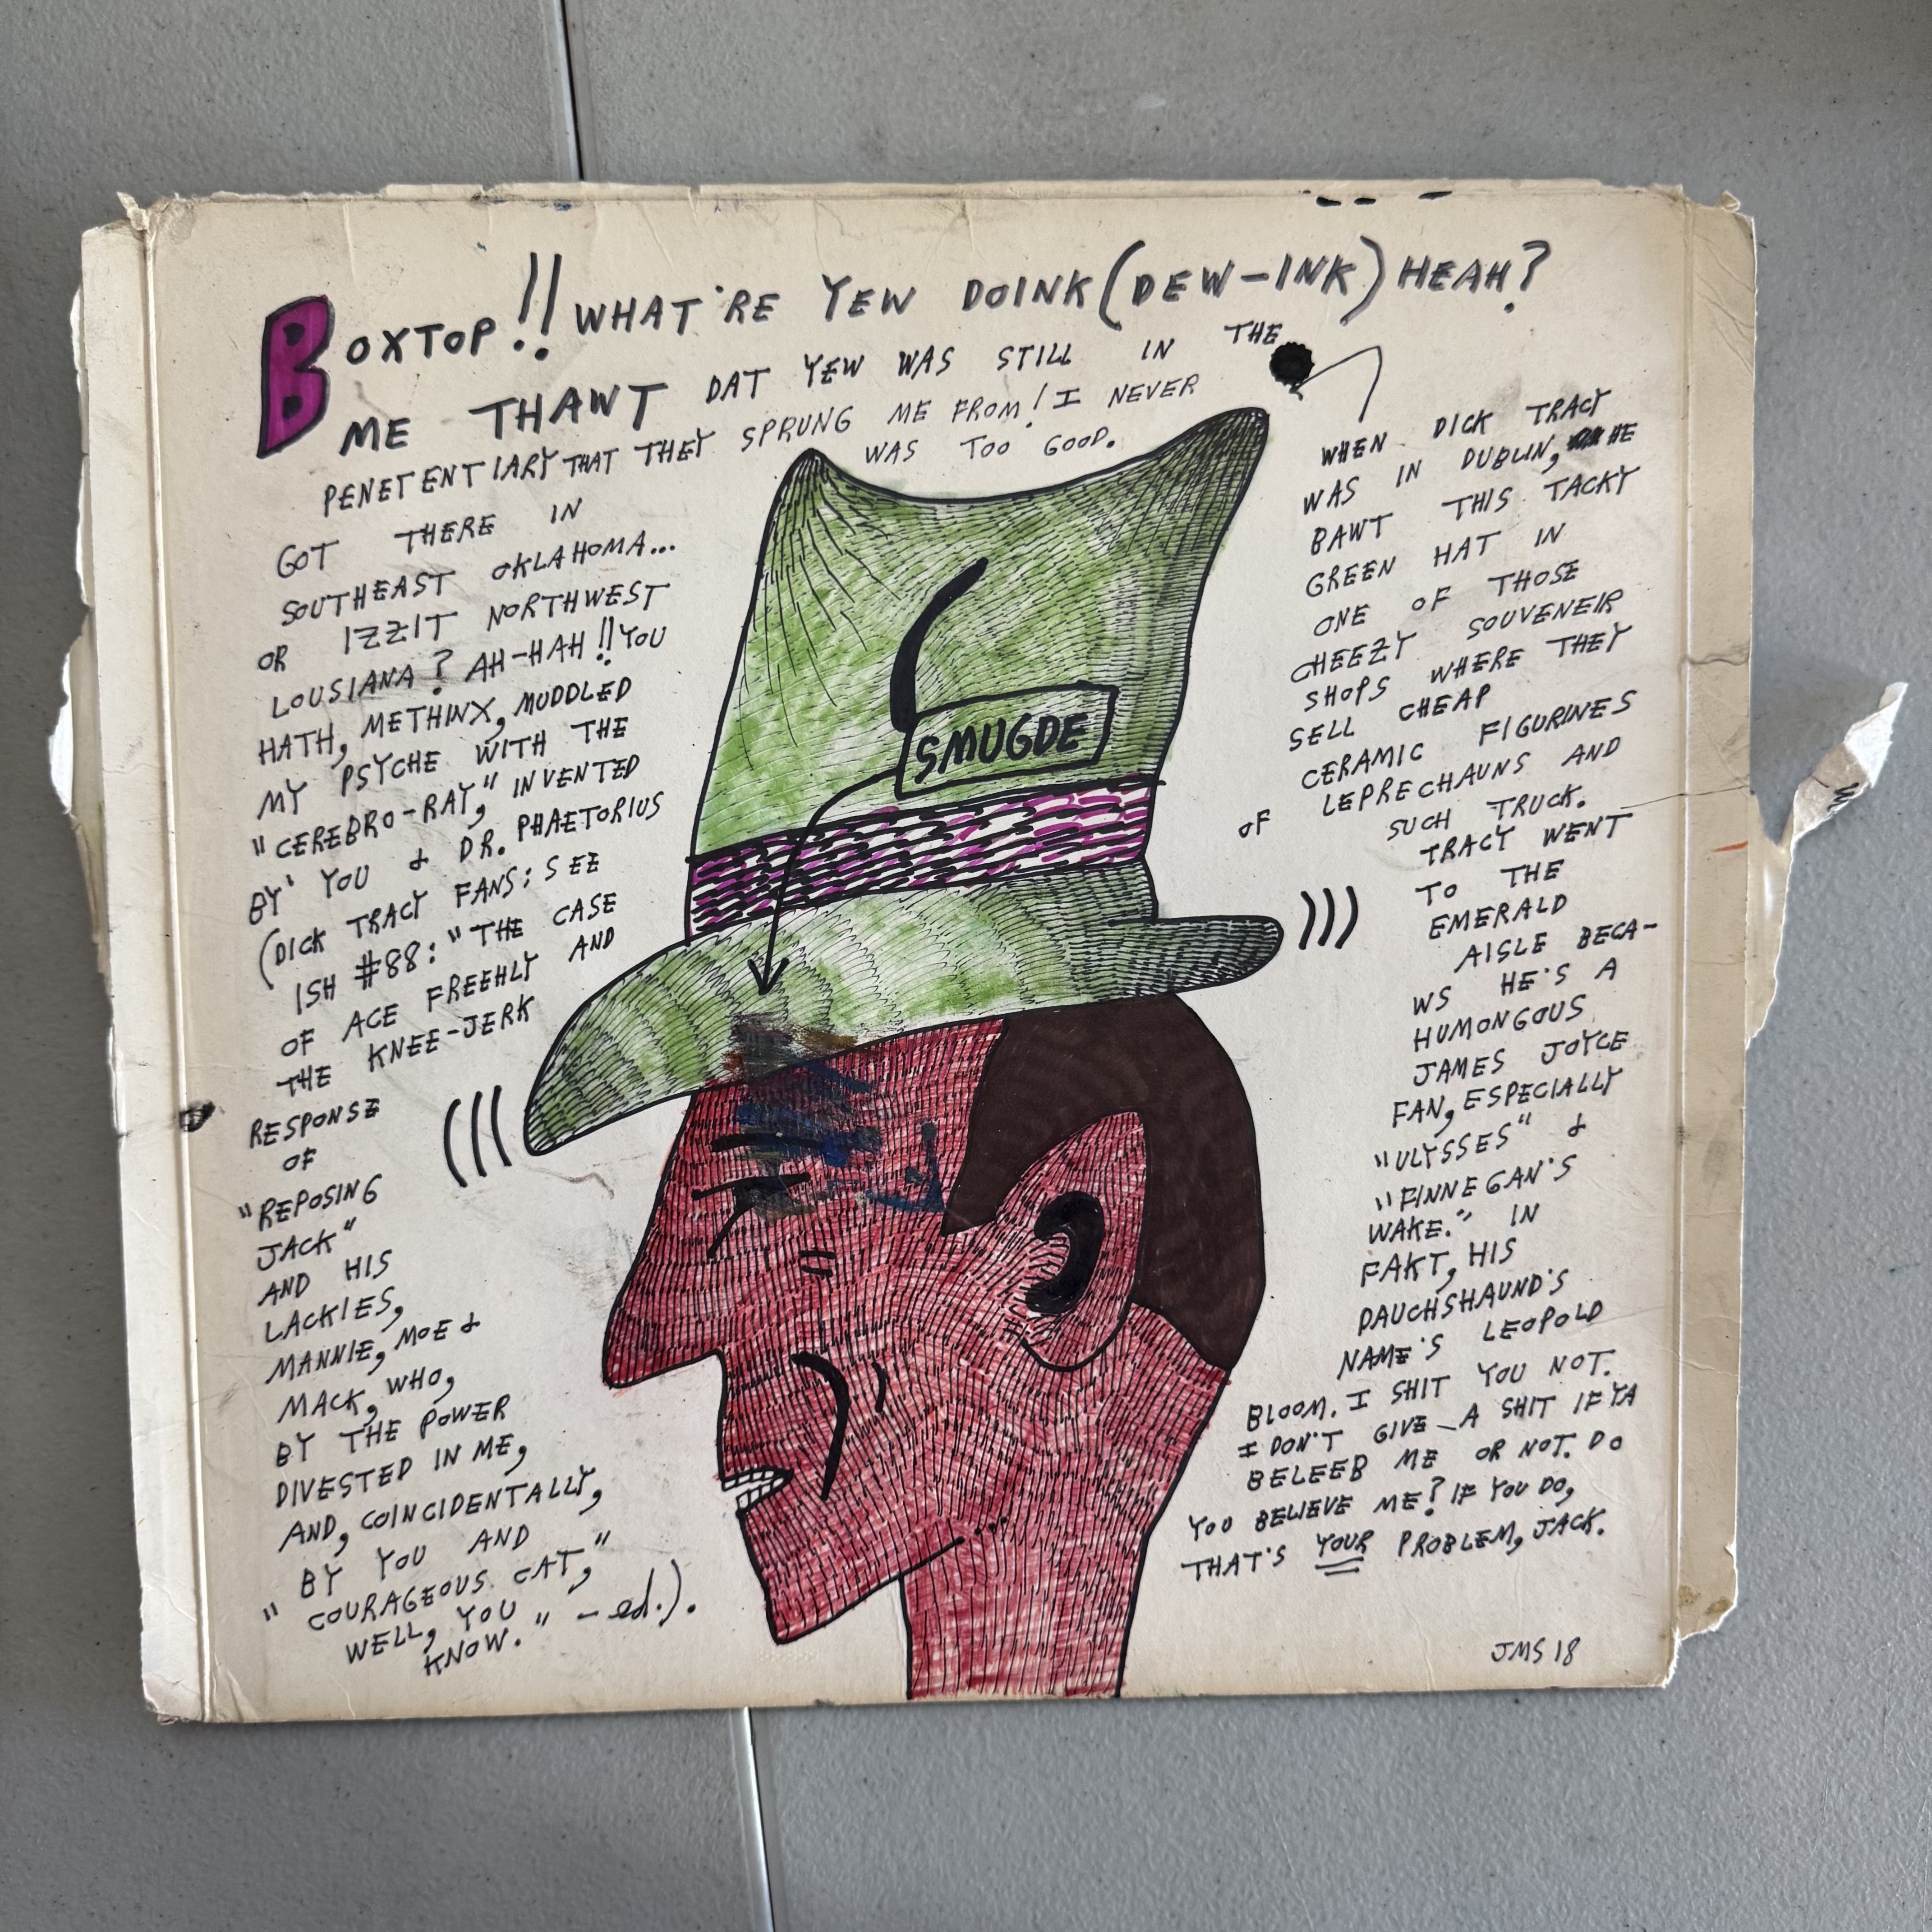 BOXTOP!! WHAT'RE YEW DOINK (DEW-INK) HEAH?
ME THAWT DAT YEW WAS STILL IN THE
PENETENTIARY THAT THEY SPRUNG ME FROM! I NEVER
WAS TOO GOOD.
GOT THERE IN
SOUTHEAST OKLAHOMA...
OR IZZIT NORTHWEST
LOUSIANA? AH-HAH!! YOU
HATH, METHINX, MUDDLED
MY PSYCHE WITH THE
"CEREBRO-RAY," INVENTED
BY' YOU & DR. PHAETORIUS
(DICK TRACY FANS: SEE
ISH #88: "THE CASE
OF ACE FREEHLY AND
THE KNEE-JERK
RESPONSE
OF
"REPOSING
JACK"
AND HIS
LACKIES,
MANNIE, MOE &
MACK, WHO,
BY THE POWER
DIVESTED IN ME,
AND, COINCIDENTALLY,
BY YOU AND
"COURAGEOUS CAT,"
WELL, YOU
KNOW." -ed.).
SMUGDE
WHEN DICK TRACY
WAS IN DUBLIN, HE
BAWT THIS TACKY
GREEN HAT IN
ONE OF THOSE
CHEEZY SOUVENEIR
SHOPS WHERE THEY
SELL CHEAP
CERAMIC FIGURINES
OF LEPRECHAUNS AND
SUCH TRUCK.
TRACY WENT
TO THE
EMERALD
AISLE BECA-
WS HE'S A
HUMONGOUS
JAMES JOYCE
FAN, ESPECIALLY
"ULYSSES" &
"FINNEGAN'S
WAKE." IN
FAKT, HIS
DAUCHSHAUND'S
NAME'S LEOPOLD
BLOOM. I SHIT YOU NOT.
I DON'T GIVE A SHIT IF YA
BELEEB ME OR NOT. DO
YOU BELIEVE ME? IF YOU DO,
THAT'S YOUR PROBLEM, JACK.
JMS 18